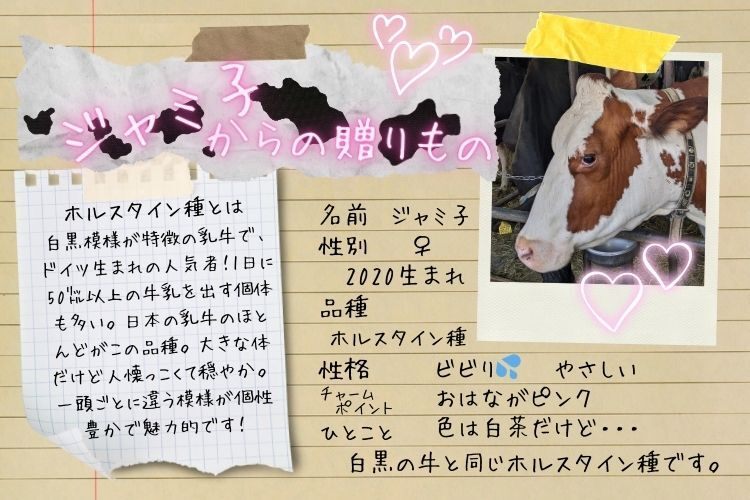 ジャミ子
からの贈りもの
ホルスタイン種とは
白黒模様が特徴の乳牛で、
ドイツ生まれの人気者!1日に
50㍑以上の牛乳を出す個体
も多い。日本の乳牛のほと
んどがこの品種。大きな体
だけど人懐っこくて穏やか。
一頭ごとに違う模様が個性
豊かで魅力的です!
名前 ジャミ子
性別 ♀
2020生まれ
品種
ホルスタイン種
性格 ビビリ💦 やさしい
チャームポイント おはながピンク
ひとこと 色は白茶だけど・・・
白黒の牛と同じホルスタイン種です。